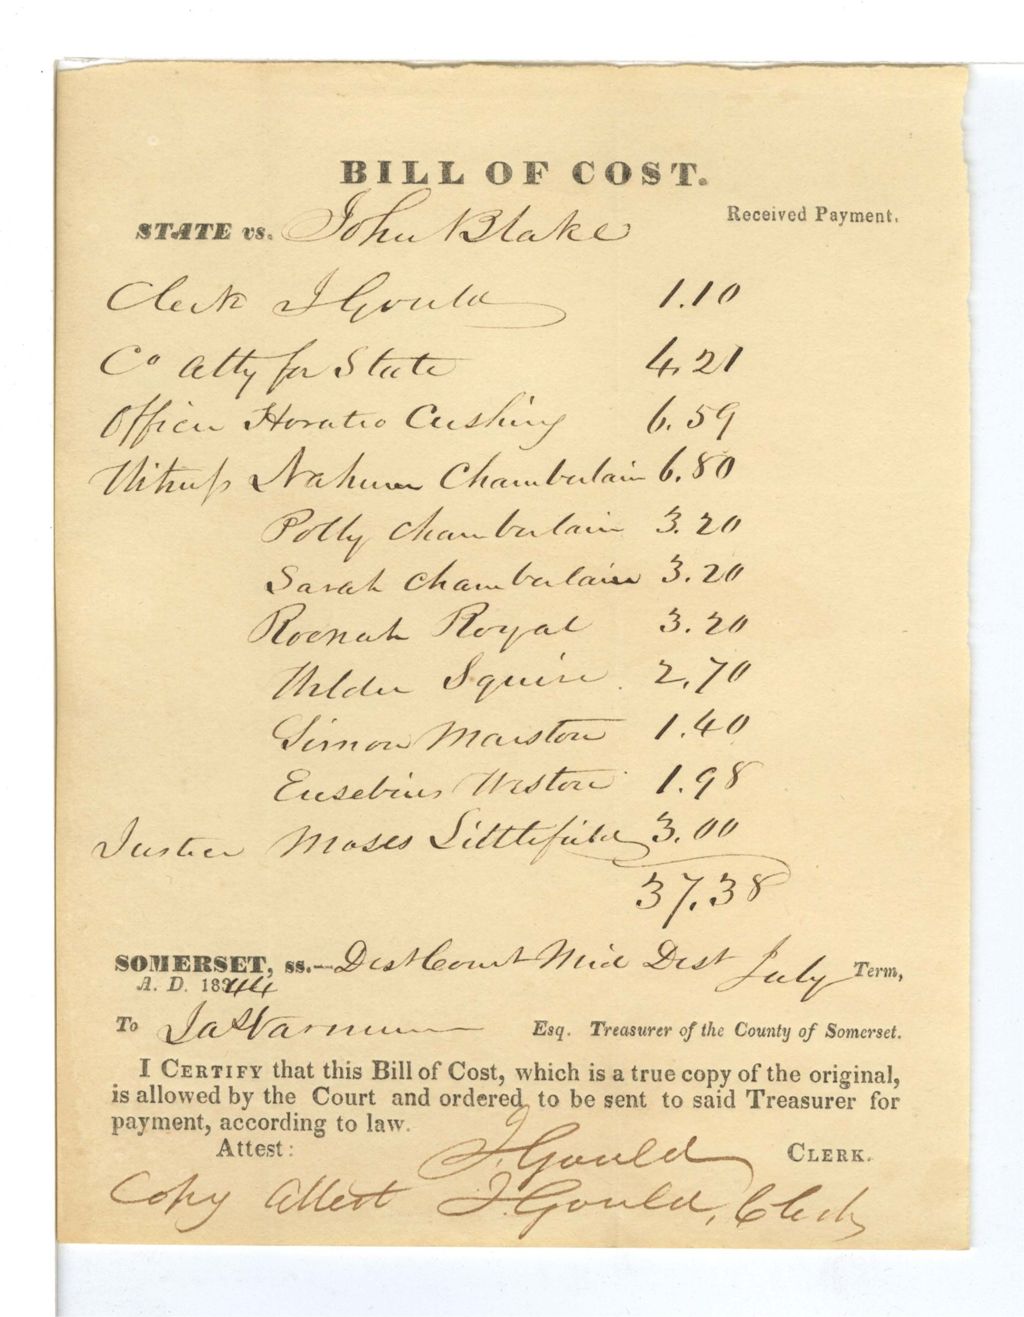 BILL OF COST.
Received Payment.
STATE vs. John Blake
Clerk J Gould 1.10
Co Atty for State 4.21
Officer Horatio Cushing 6.59
Witness Nahum Chamberlain 6.80
Polly Chamberlain 3.20
Sarah Chamberlain 3.20
Roenah Royal 3.20
Wilder Squire 2.70
Simon Marston 1.40
Eusebius Weston 1.98
Justice Moses Littlefield 3.00
37.38
SOMERSET, ss.—Dist Court Mid Dist July Term,
A. D. 1844
To Varnum Esq. Treasurer of the County of Somerset.
I CERTIFY that this Bill of Cost, which is a true copy of the original,
is allowed by the Court and ordered to be sent to said Treasurer for
payment, according to law.
Attest: J. Gould CLERK.
Copy Attest J. Gould, Clerk